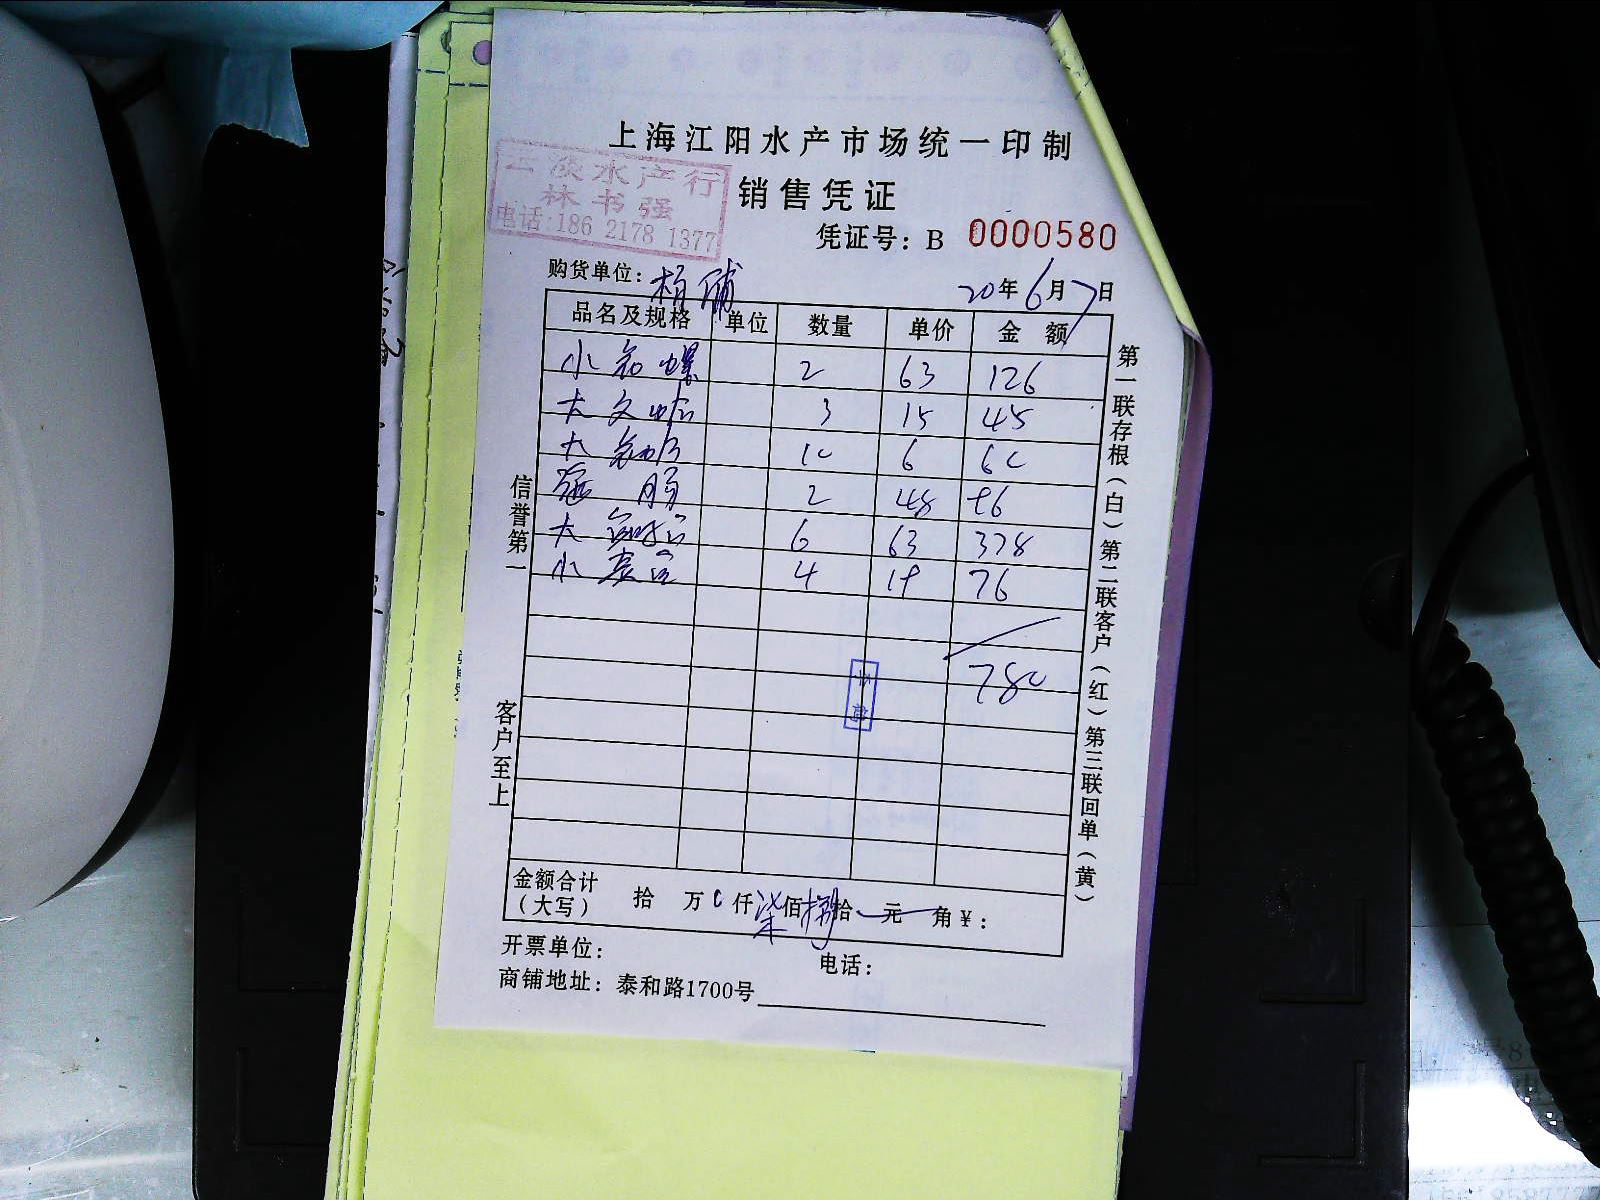 上海江阳水产市场统一印制
三淡水产行
林书强
电话:186 2178 1377
销售凭证
凭证号：B 0000580
购货单位：
20年6月7日
品名及规格 单位 数量 单价 金额
小 螺 2 63 126
大文蛤 3 15 45
大 10 6 60
2 48 96
大 6 63 378
小 4 19 76
780
金额合计（大写） 拾 万0仟柒佰捌拾 元 角￥：
开票单位： 电话：
商铺地址：泰和路1700号
信誉第一
客户至上
第一联存根（白）第二联客户（红）第三联回单（黄）